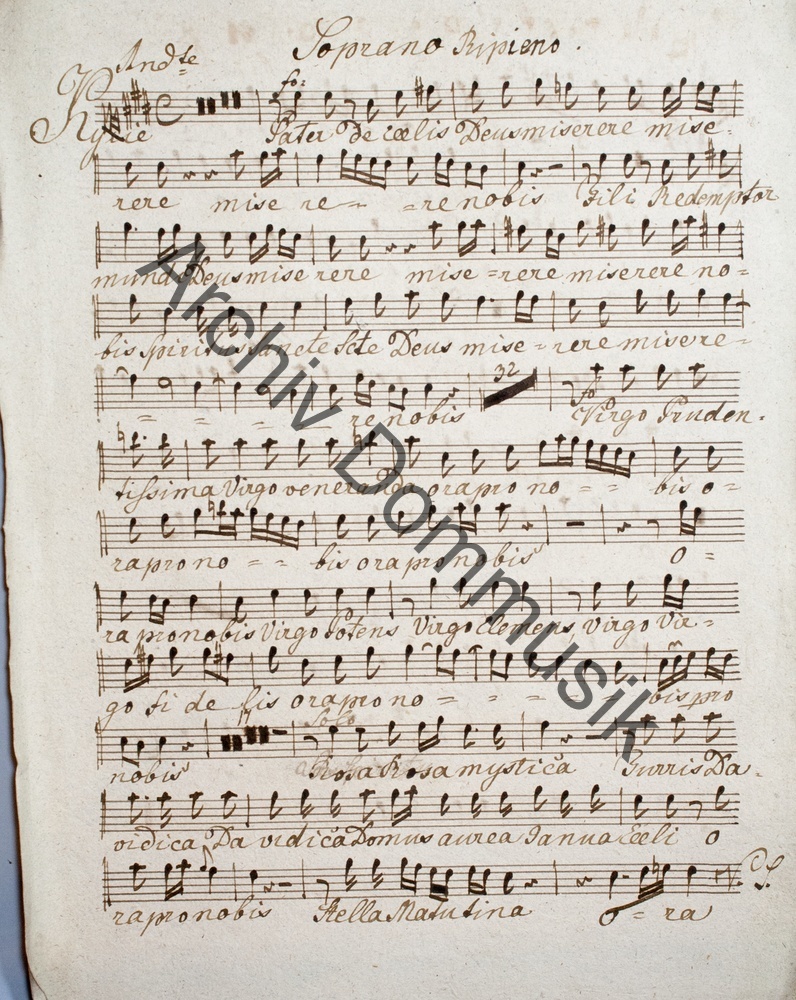 Soprano Ripieno.
Andte
Kyrie
fo:
Pater de cœlis Deus miserere mise-
rere mise re - - re nobis Fili Redemptor
mundi Deus mise rere mise = rere miserere no =
bis Spiritus sancte Scte Deus mise = rere misere =
32
fo
= = = = re nobis Virgo Pruden-
tissima Virgo veneranda ora pro no = = bis o =
ra pro no = = bis ora pro nobis o =
ra pro nobis Virgo Potens Virgo Clemens, virgo Vir =
go fi de lis ora pro no = = = = bis pro
Solo
nobis Rosa Rosa mystica Turris Da-
vidica Da vidica Domus aurea Janua Cæli o
V. S.
ra pro nobis Stella Matutina o = ra
Archiv Dommusik